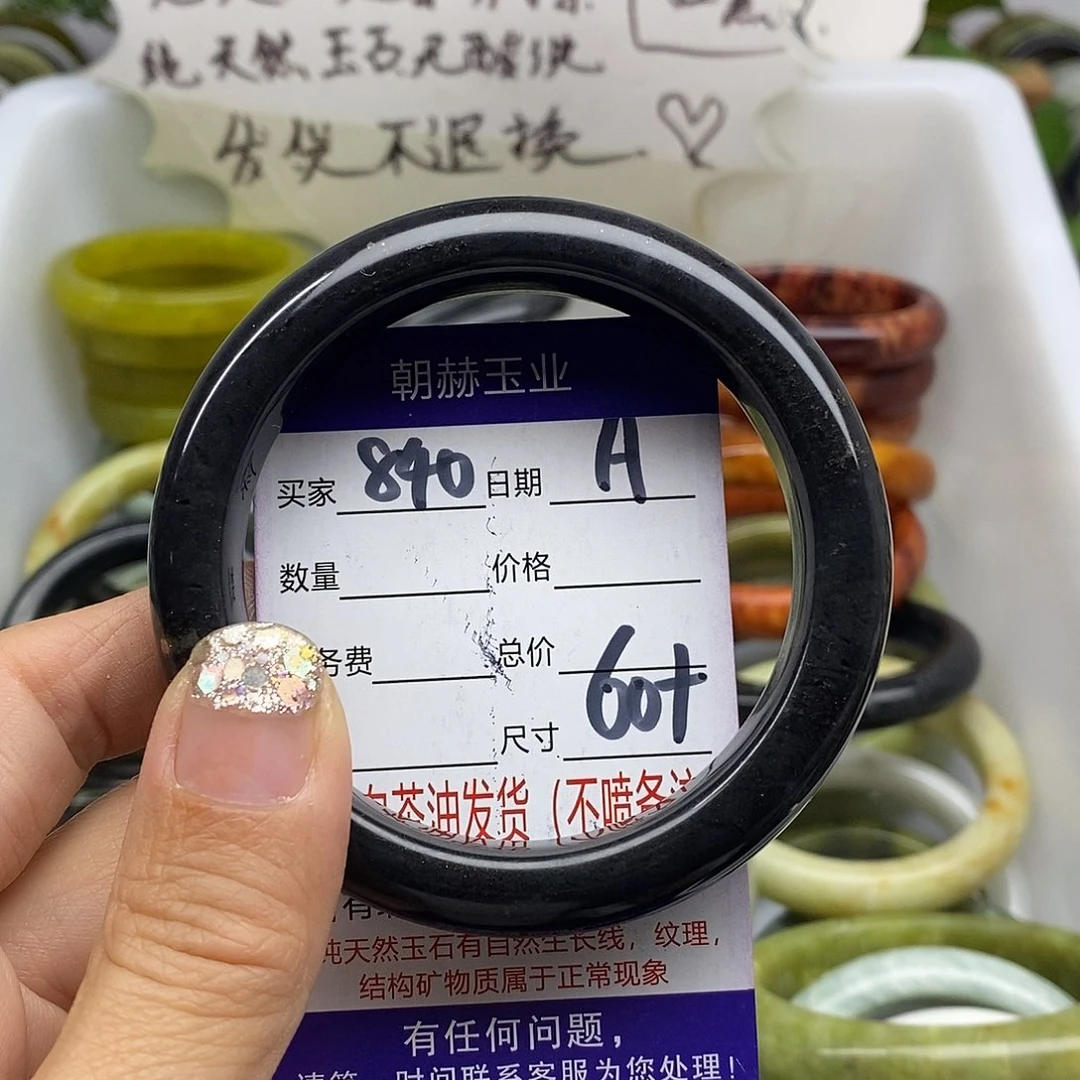 纯天然玉石无酸洗
发货不退换
朝赫玉业
买家 840 日期 A
数量 价格
务费 总价
尺寸 60+
白茶油发货（不喷备注
纯天然玉石有自然生长线，纹理，
结构矿物质属于正常现象
有任何问题，
时间联系客服为您处理！